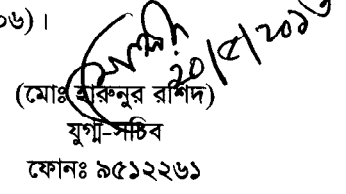 ০৬)।
২০/৫/২০১৬
(মোঃ হারুনুর রশিদ)
যুগ্ম-সচিব
ফোনঃ ৯৫১২২৬১